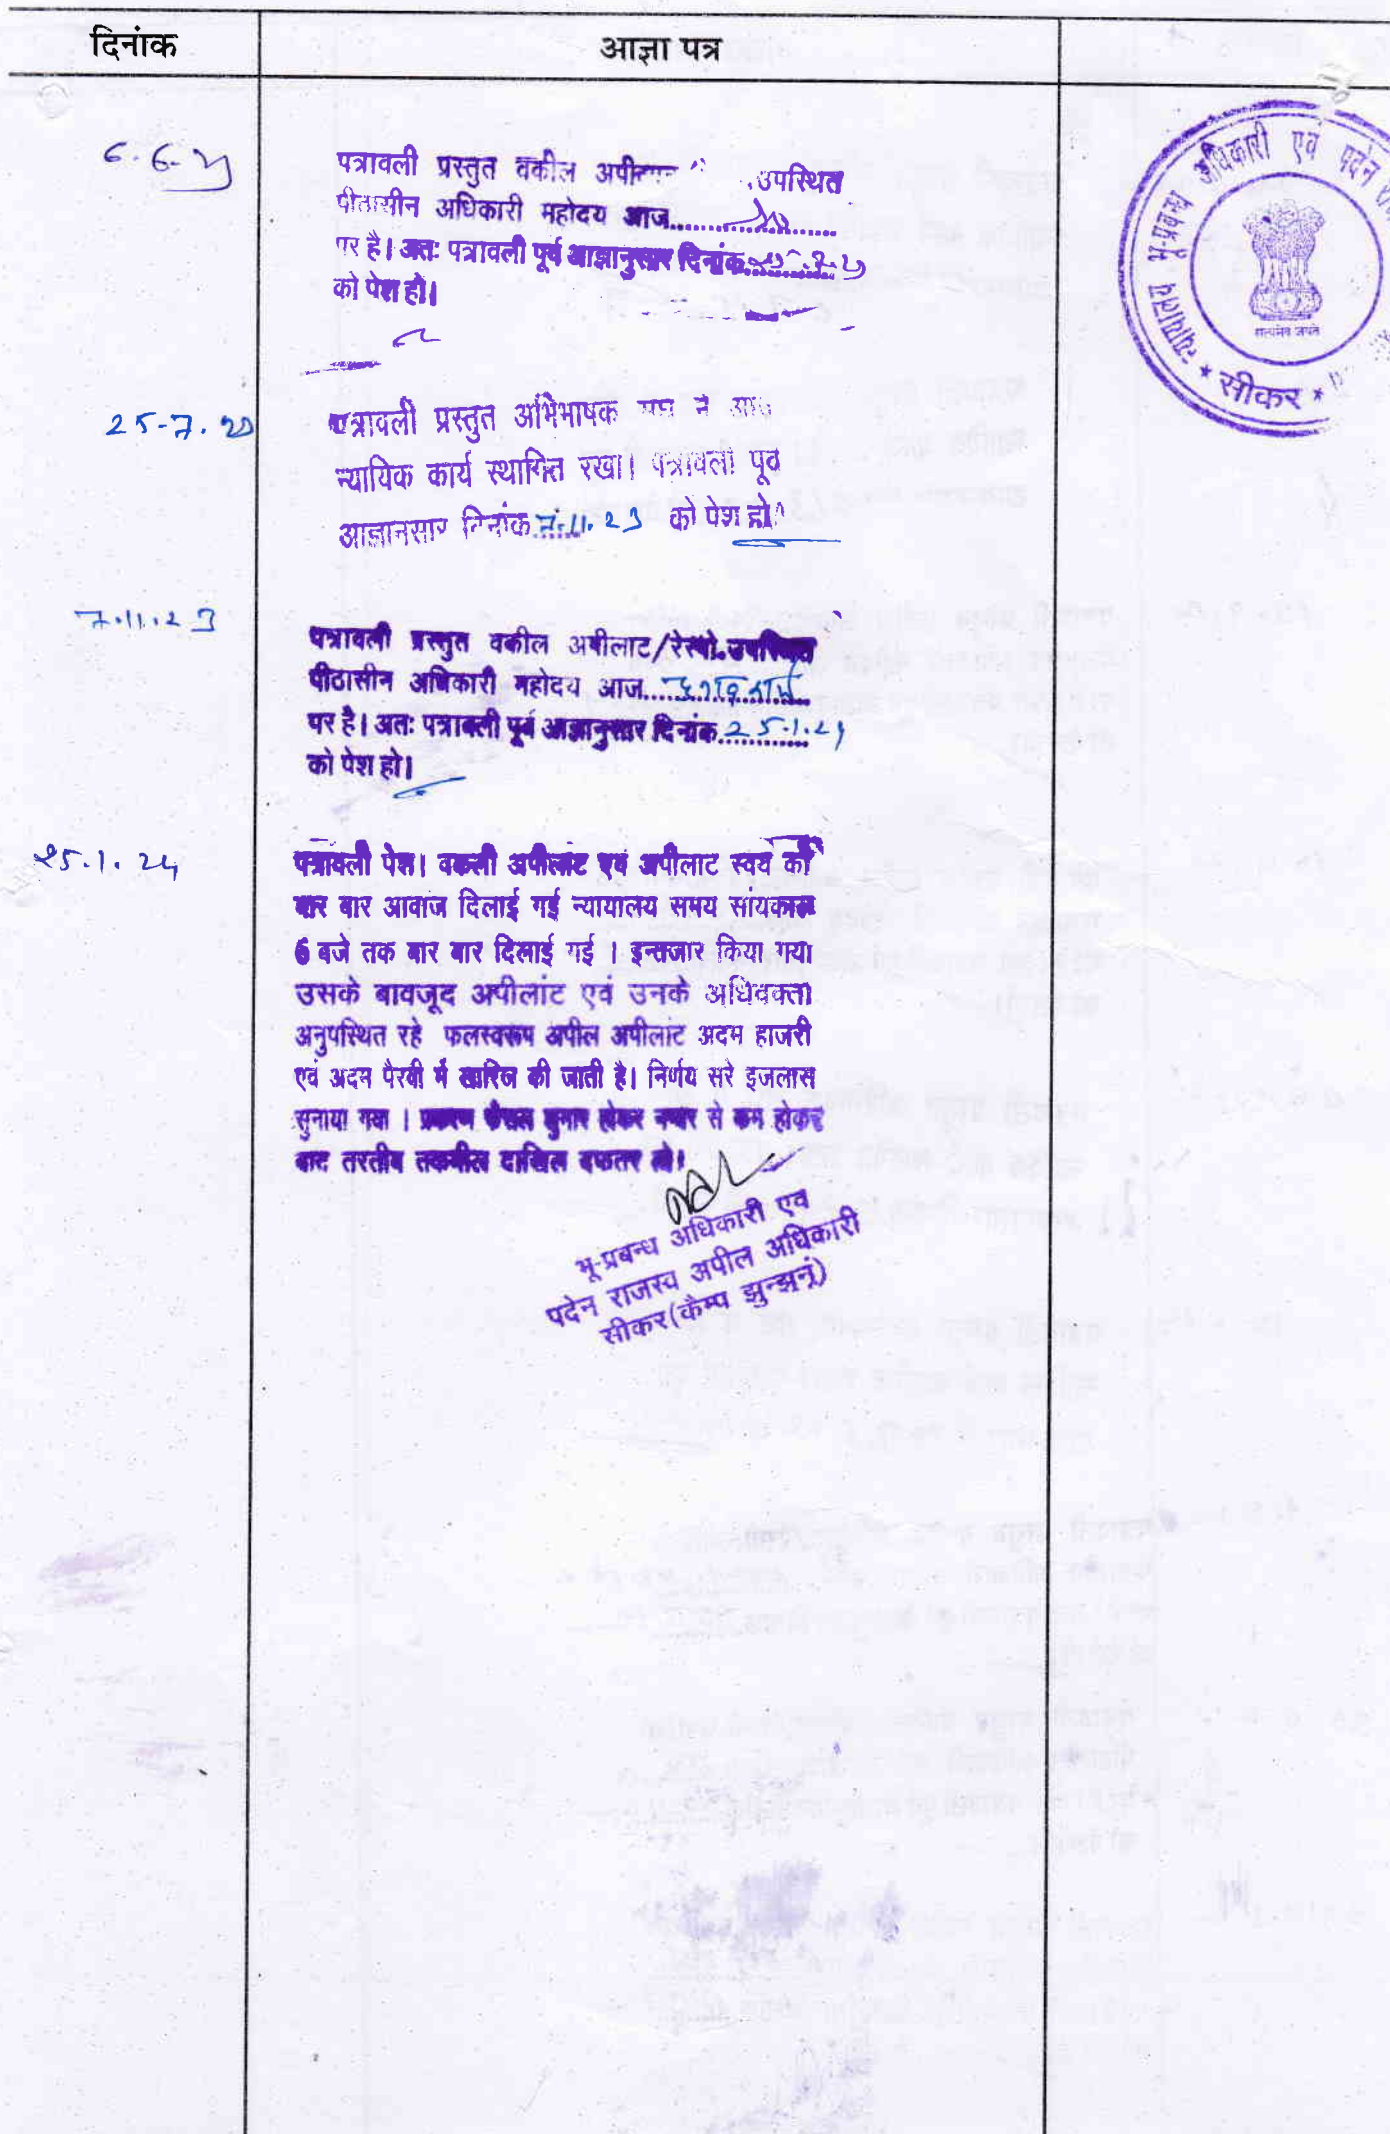 दिनांक
आज्ञा पत्र
न्यायालय भू-प्रबन्ध अधिकारी एवं पदेन
सत्यमेव जयते
* सीकर *
6-6-23
पत्रावली प्रस्तुत वकील उपस्थित
पीठासीन अधिकारी महोदय आज
पर है। अतः पत्रावली पूर्व आज्ञानुसार दिनांक
को पेश हो।
25-7-23
पत्रावली प्रस्तुत अभिभाषक संघ ने आज
न्यायिक कार्य स्थागित रखा। पत्रावली पूर्व
आज्ञानसार दिनांक 7.11.23 को पेश हो।
7.11.23
पत्रावली प्रस्तुत वकील अपीलाट/रेस्पो.उपस्थित
पीठासीन अधिकारी महोदय आज
पर है। अतः पत्रावली पूर्व आज्ञानुसार दिनांक 25.1.24
को पेश हो।
25.1.24
पत्रावली पेश। वकली अपीलांट एवं अपीलाट स्वयं को
बार बार आवाज दिलाई गई न्यायालय समय सांयकाल
6 बजे तक बार बार दिलाई गई । इन्तजार किया गया
उसके बावजूद अपीलांट एवं उनके अधिवक्ता
अनुपस्थित रहे फलस्वरूप अपील अपीलांट अदम हाजरी
एवं अदम पैरवी में खारिज की जाती है। निर्णय सरे इजलास
सुनाया गया । प्रकरण फैसल शुमार होकर नम्बर से कम होकर
बाद तरतीब तकमील दाखिल दफतर हो।
भू-प्रबन्ध अधिकारी एवं
पदेन राजस्व अपील अधिकारी
सीकर(कैम्प झुन्झुनूं)